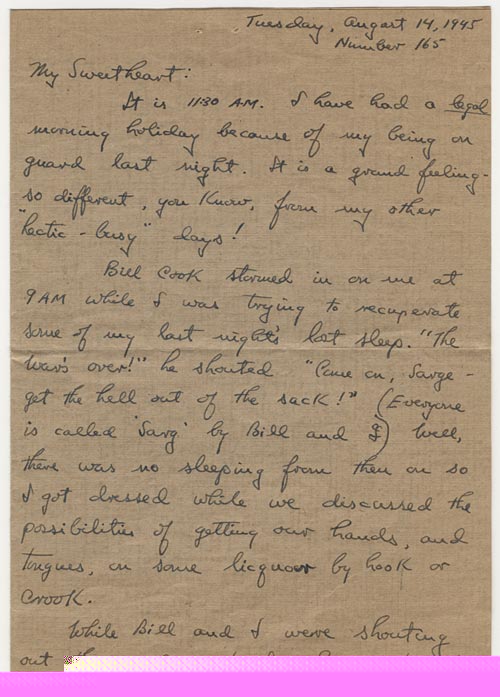 Tuesday, August 14, 1945
Number 165
My Sweetheart:
It is 11:30 A.M. I have had a legal
morning holiday because of my being on
guard last night. It is a grand feeling -
so different, you know, from my other
"hectic - busy" days!
Bill Cook stormed in on me at
9 AM while I was trying to recuperate
some of my last night's lost sleep. "The
War's over!" he shouted "Come on, Sarge -
get the hell out of the sack!" (Everyone
is called 'Sarg' by Bill and I) Well,
there was no sleeping from then on so
I got dressed while we discussed the
possibilities of getting our hands, and
tongues, on some licquor by hook or
crook.
While Bill and I were shouting
out